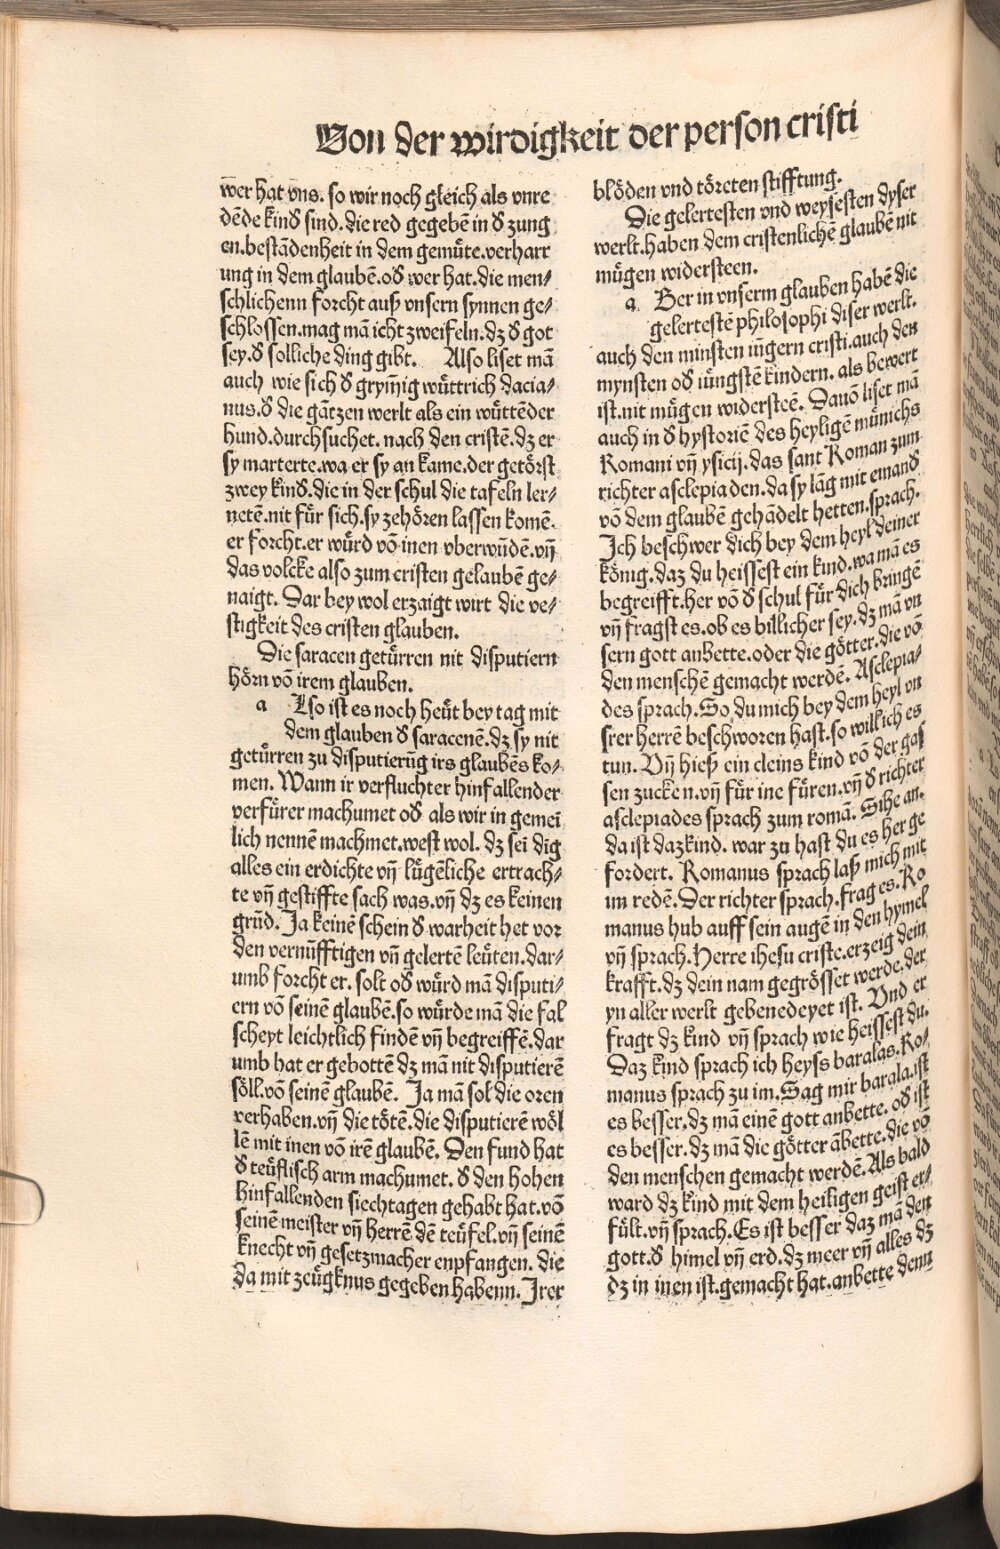 Von der wirdigkeit der person cristi
wer hat vns. so wir noch gleich als vnre
dēde kinđ sind. die red gegebē in đ zung
en. bestādenheit in dem gemüte. verharr
ung in dem glaubē. ođ wer hat. die men⸗
schlichenn forcht auß vnsern synnen ge⸗
schlossen. mag mā icht zweifeln. dz đ got
sey. đ solliche ding gibt. Also liset mā
auch wie sich đ grym̄ig wüttrich dacia⸗
nus. đ die gātzen werlt als ein wüttēder
hund. durchsuchet. nach den cristē. dz er
sy marterte. wa er sy an kame. der getörst
zwey kinđ. die in der schul die tafeln ler⸗
netē. nit für sich. sy zehören lassen komē.
er forcht. er würd vō inen vberwūdē. vn̄
das volcke also zum cristen gelaubē ge⸗
naigt. Dar bey wol erzaigt wirt die ve⸗
stigkeit des cristen glauben.
Die saracen getürren nit disputiern
hörn vō irem glauben.
a Lso ist es noch heüt bey tag mit
dem glauben đ saracenē. dz sy nit
getürren zu disputierūg irs glaubēs ko⸗
men. Wann ir verfluchter hinfallender
verfürer machumet ođ als wir in gemeī
lich nennē machmet. west wol. dz sei dīg
alles ein erdichte vn̄ lügēliche ertrach⸗
te vn̄ gestiffte sach was. vn̄ dz es keinen
grūd. Ja keinē schein đ warheit het vor
den vernüfftigen vn̄ gelertē leüten. dar⸗
umb forcht er. solt ođ würd mā disputi⸗
ern vō seinē glaubē. so würde mā die fal
scheyt leichtlich findē vn̄ begreiffē. dar
umb hat er gebottē dz mā nit disputierē
söll. vō seinē glaubē. Ja mā sol die oren
verhaben. vn̄ die tötē. die disputierē wöl
lē mit inen vō irē glaubē. Den fund hat
đ teüflisch arm machumet. đ den hohen
hinfallenden siechtagen gehabt hat. vō
seinē meister vn̄ herrē dē teüfel. vn̄ seinē
knecht vn̄ gesetzmacher enpfangen. die
da mit zeügknus gegeben habenn. Irer
blöden vnd töreten stifftung.
Die gelertesten vnd weysesten dyser
werlt. haben dem cristenlichē glaubē nit
mügen widersteen.
a Ber in vnserm glauben habē die
gelertestē philosophi diser werlt.
auch den minsten iūgern cristi. auch den
mynsten ođ iüngstē kindern. als bewert
ist. nit mügen widersteē. Dauō liset mā
auch in đ hystoriē des heyligē münichs
Romani vn̄ ysicij. das sant Roman zum
richter asclepiaden. da sy lāg mit einanđ
vō dem glaubē gehādelt hetten. sprach.
Ich beschwer dich bey dem heyl deiner
könig. daz du heissest ein kind. wa mā es
begreifft. her vō đ schul für dich bringē
vn̄ fragst es. ob es billicher sey. dz mā vn
sern gott anbette. oder die götter. die vō
den menschē gemacht werdē. Asclepia⸗
des sprach. So du mich bey dem heyl vn
srer herrē beschworen hast. so wil ich es
tun. Vn̄ hieß ein cleins kind vō der gas
sen zucken. vn̄ für ine füren. vn̄ đ richter
asclepiades sprach zum romā. Sihe an.
da ist daz kind. war zu hast du es her ge
fordert. Romanus sprach laß mich mit
im redē. Der richter sprach. frag es. Ro
manus hub auff sein augē in den hymel
vn̄ sprach. Herre ihesu criste. erzeig dein
krafft. dz dein nam gegrösset werde. der
yn aller werlt gebenedeyet ist. Vnd er
fragt dz kind vn̄ sprach wie heissest du.
Daz kind sprach ich heyss baralas. Ro⸗
manus sprach zu im. Sag mir barala. ist
es besser. dz mā einē gott anbette. ođ ist
es besser. dz mā die götter ābette. die vō
den menschen gemacht werdē. Als bald
ward dz kind mit dem heiligen geist er⸗
fült. vn̄ sprach. Es ist besser daz mā den
gott. đ himel vn̄ erd. dz meer vn̄ alles dz
dz in inen ist. gemacht hat. anbette denn